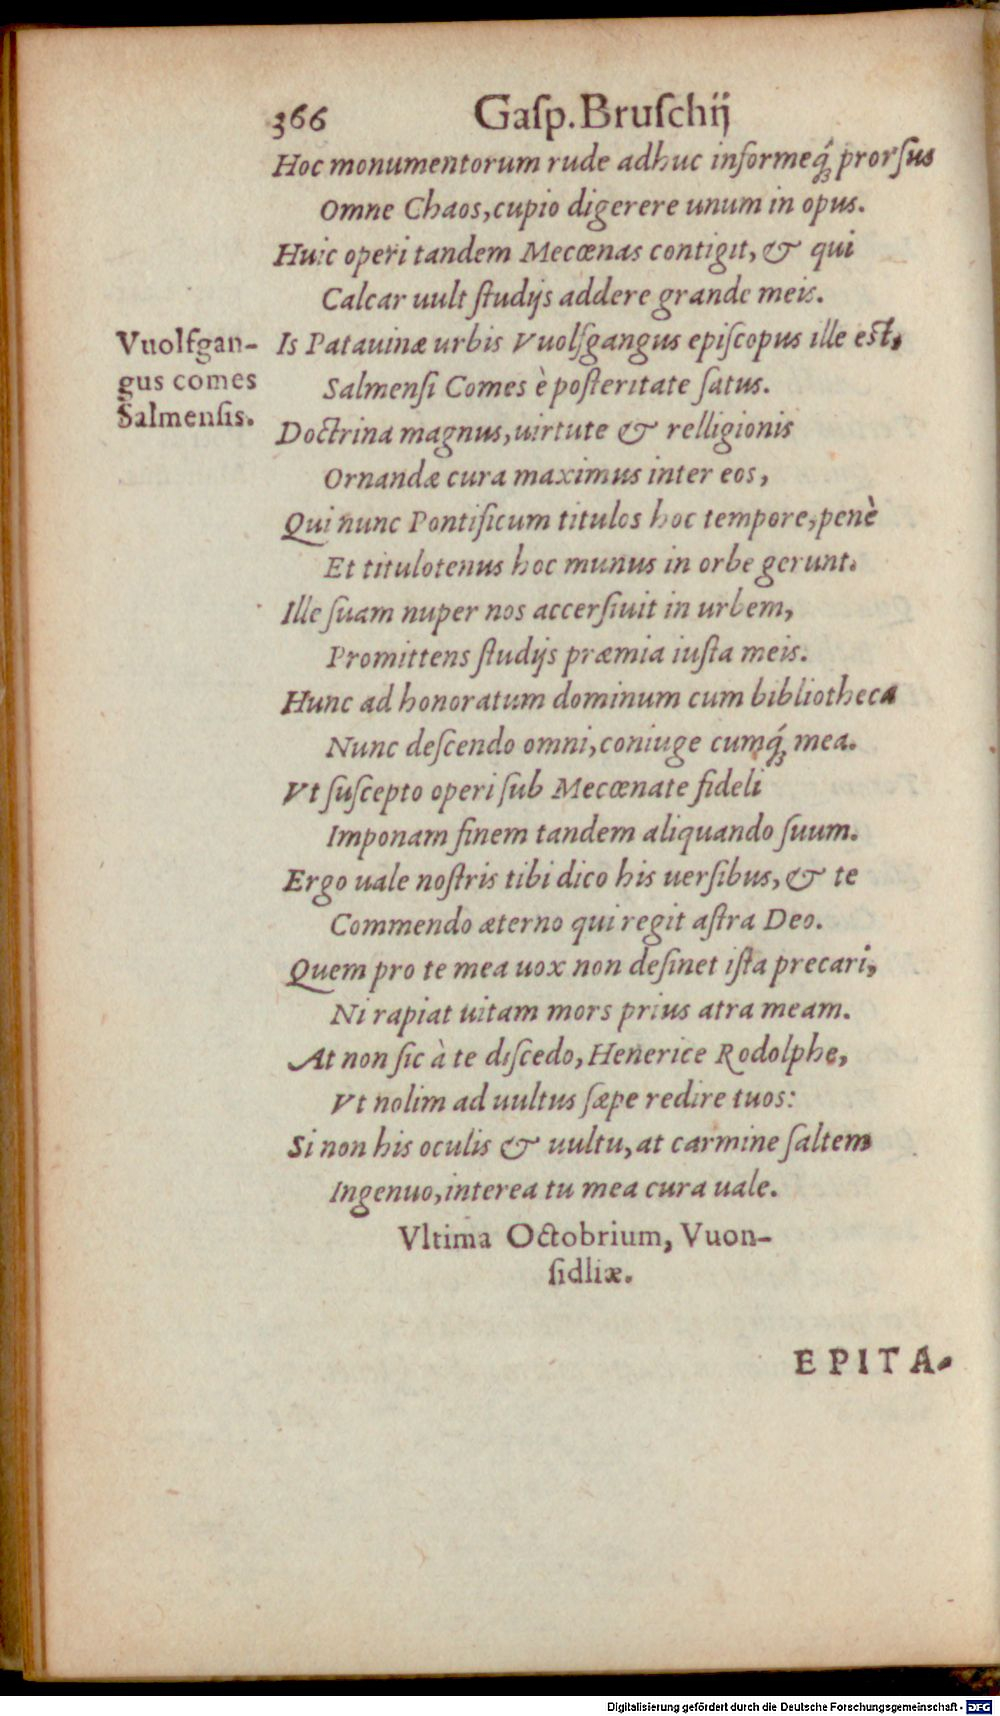 366 Gaſp. Bruſchij
Hoc monumentorum rude adhuc informeq́ꝫ prorſus
Omne Chaos, cupio digerere unum in opus.
Huic operi tandem Mecœnas contigit, & qui
Calcar uult ſtudijs addere grande meis.
Vuolfgan-
gus comes
Salmenſis.
Is Patauinæ urbis Vuolfgangus epiſcopus ille eſt,
Salmenſi Comes è poſteritate ſatus.
Doctrina magnus, uirtute & relligionis
Ornandæ cura maximus inter eos,
Qui nunc Pontificum titulos hoc tempore, penè
Et titulotenus hoc munus in orbe gerunt.
Ille ſuam nuper nos accerſiuit in urbem,
Promittens ſtudijs præmia iuſta meis.
Hunc ad honoratum dominum cum bibliotheca
Nunc deſcendo omni, coniuge cumq́ꝫ mea.
Vt ſuſcepto operi ſub Mecœnate fideli
Imponam finem tandem aliquando ſuum.
Ergo uale noſtris tibi dico his uerſibus, & te
Commendo æterno qui regit aſtra Deo.
Quem pro te mea uox non deſinet iſta precari,
Ni rapiat uitam mors prius atra meam.
At non ſic à te diſcedo, Henerice Rodolphe,
Vt nolim ad uultus ſæpe redire tuos:
Si non his oculis & uultu, at carmine ſaltem
Ingenuo, interea tu mea cura uale.
Vltima Octobrium, Vuon-
ſidliæ.
EPITA-
Digitalisierung gefördert durch die Deutsche Forschungsgemeinschaft - DFG